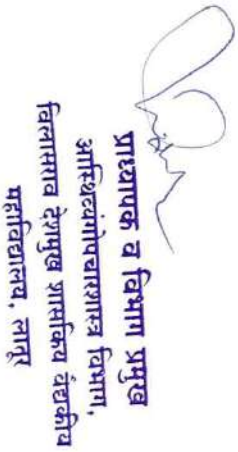 प्राध्यापक व विभाग प्रमुख
अस्थिव्यंगोपचारशास्त्र विभाग,
विलासराव देशमुख शासकिय वैद्यकीय
महाविद्यालय, लातूर